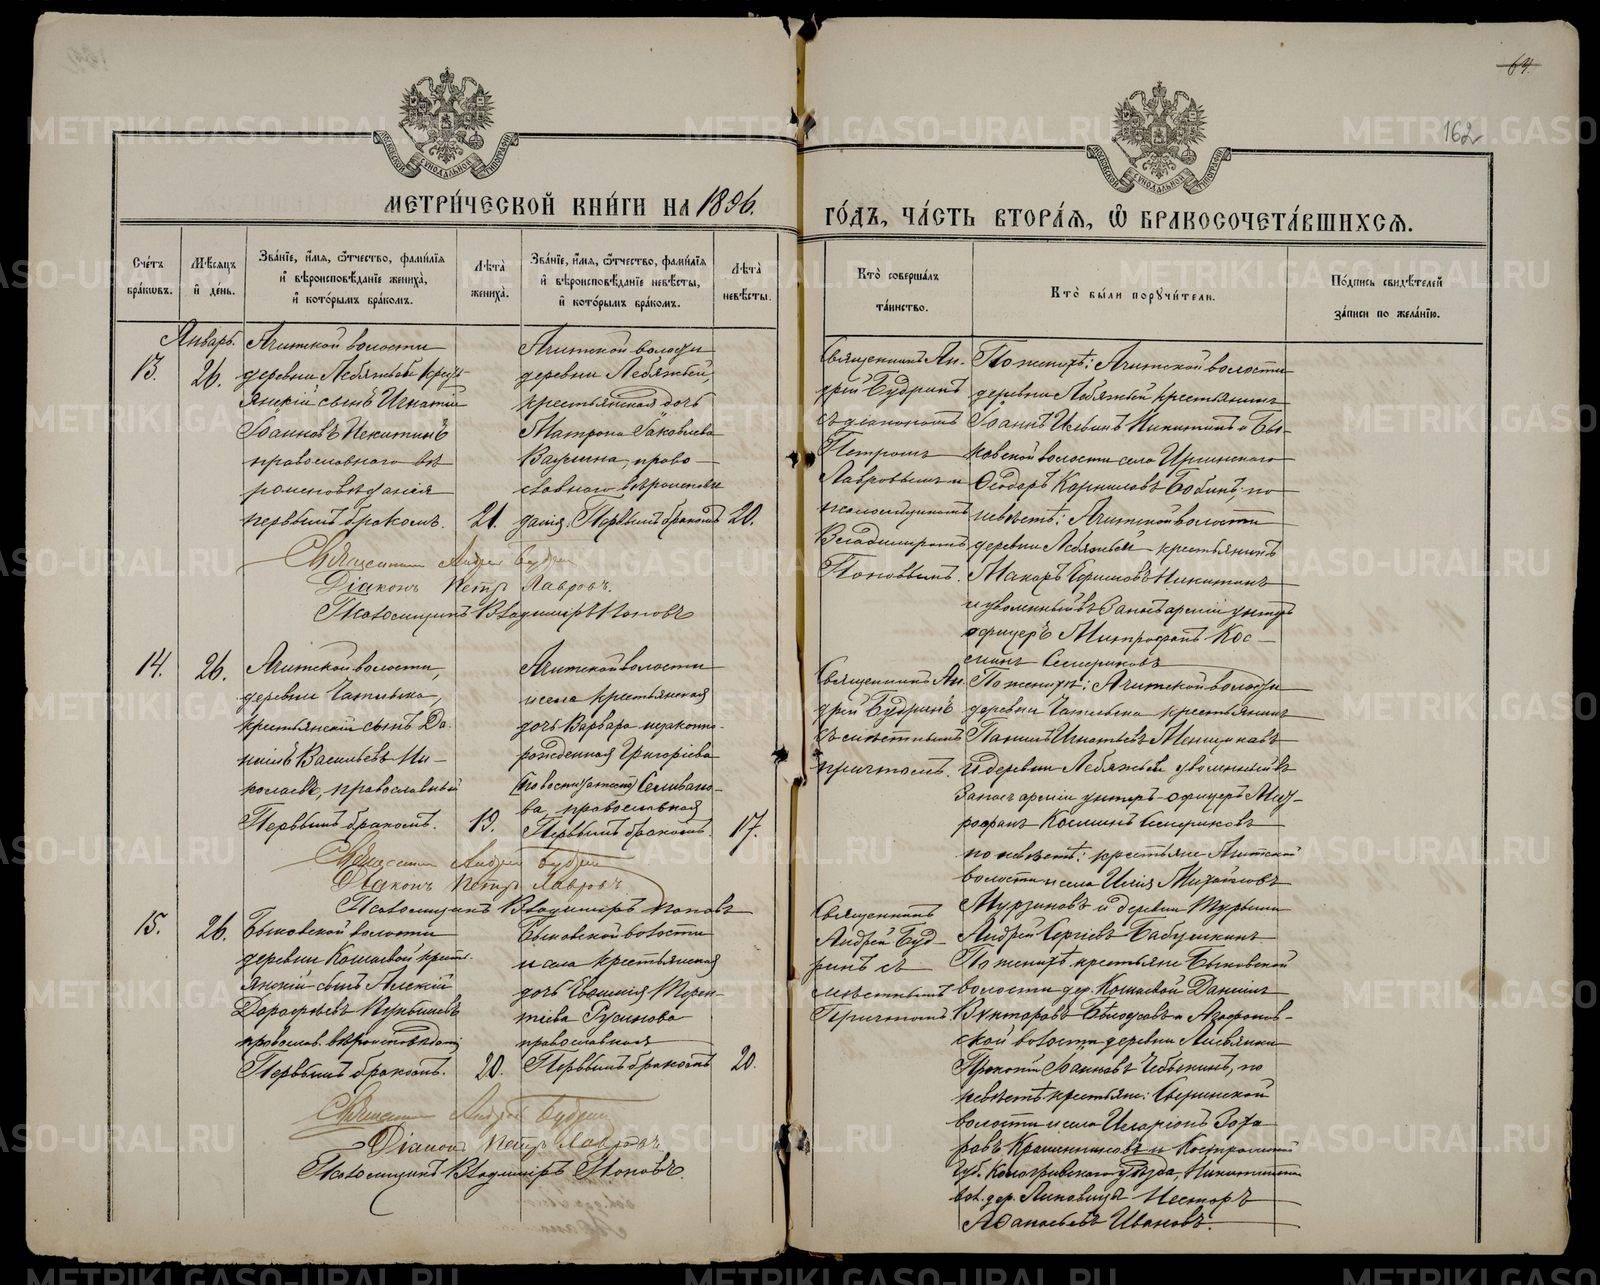 64.
162
МОСКОВСКОЙ СѴНОДАЛЬНОЙ ТИПОГРАФІИ
МОСКОВСКОЙ СѴНОДАЛЬНОЙ ТИПОГРАФІИ
МЕТРИ́ЧЕСКОЙ КНИ́ГИ НА 1896.
ГО́ДЪ, ЧА́СТЬ ВТОРА́Ѧ, Ѽ БРАКОСОЧЕТА́ВШИХСѦ.
Сче́тъ бра́кѡвъ.
Мѣ́сяцъ и́ де́нь.
Зва́нїе, и́мя, ѻ҆́тчество, фами́лїя и҆ вѣроисповѣ́данїе жениха̀, и҆ кото́рымъ бра́комъ.
Лѣ́та жениха̀.
Зва́нїе, и́мя, ѻ҆́тчество, фами́лїя и҆ вѣроисповѣ́данїе невѣ́сты, и҆ кото́рымъ бра́комъ.
Лѣ́та невѣ́сты.
Кто̀ соверша́лъ та́инство.
Кто̀ бы́ли порꙋчи́тели.
По́дпись свидѣ́телей за́писи по жела́нїю.
Январь.
13.
26.
Ачитской волости
деревни Лебяжьей крестьянскій сынъ Игнатій
Іоанновъ Никитинъ
православнаго вѣ
роисповѣданія
первымъ бракомъ.
21.
Ачитской волости
деревни Лебяжьей,
крестьянская дочь
Матрона Іаковлева
право
славнаго вѣроисповѣ
данія. Первымъ бракомъ
20.
Священникъ Ан-
дрей Будринъ
съ діакономъ
Петромъ
Лавровымъ и
псаломщикомъ
Владимиромъ
Поповымъ.
По женихѣ: Ачитской волости
деревни Лебяжьей крестьянинъ
Іоаннъ Никитинъ и Бы-
ковской волости села Иргинскаго
Ѳеодоръ Корниловъ Бобинъ по
невѣстѣ: Ачитской волости
деревни Лебяжьей крестьянинъ
Макаръ Никитинъ
и уволенный въ запасъ арміи унтеръ
офицеръ Митрофанъ Кос-
минъ
Священникъ Андрей Будринъ
Діаконъ Петръ Лавровъ.
Псаломщикъ Владимиръ Поповъ
14.
26.
Ачитской волости,
деревни
крестьянскій сынъ Да-
ніилъ Васильевъ Ни-
колаевъ, православный
Первымъ бракомъ.
19.
Ачитской волости
и села крестьянская
дочь Варвара незаконно-
рожденная Григоріева
Селивано-
ва, православная
Первымъ бракомъ.
17.
Священникъ Ан-
дрей Будринъ
съ мѣстнымъ
причтомъ.
По женихѣ: Ачитской волости
деревни крестьянинъ
Игнатьевъ
и деревни Лебяжьей уволенный въ
запасъ арміи унтеръ-офицеръ Мит-
рофанъ Косминъ
по невѣстѣ: крестьяне Ачитской
волости и села Илія Михайловъ
Мурзиновъ и деревни
Андрей Сергіевъ Бабушкинъ
Священникъ Андрей Будринъ
Діаконъ Петръ Лавровъ.
Псаломщикъ Владимиръ Поповъ
15.
26.
Быковской волости
деревни Кошаевой крест-
янскій сынъ Алексій
Дороѳеевъ
правосл. вѣроисповѣданія
Первымъ бракомъ.
20.
Быковской волости
и села крестьянская
дочь Терен-
тіева Русинова
православная
Первымъ бракомъ
20.
Священникъ
Андрей Буд-
ринъ съ
мѣстнымъ
Причтомъ
По женихѣ крестьяне Быковской
волости дер. Кошаевой Даніилъ
Викторовъ и
ской волости деревни
Прокопій Іоанновъ по
невѣстѣ крестьяне:
волости и села Иларіонъ
и Костромской
губ. Кологривскаго уѣзда,
вол. дер. Несторъ
Аѳанасьевъ Ивановъ.
Священникъ Андрей Будринъ
Діаконъ Петръ Лавровъ.
Псаломщикъ Владимиръ Поповъ.
METRIKI.GASO-URAL.RU